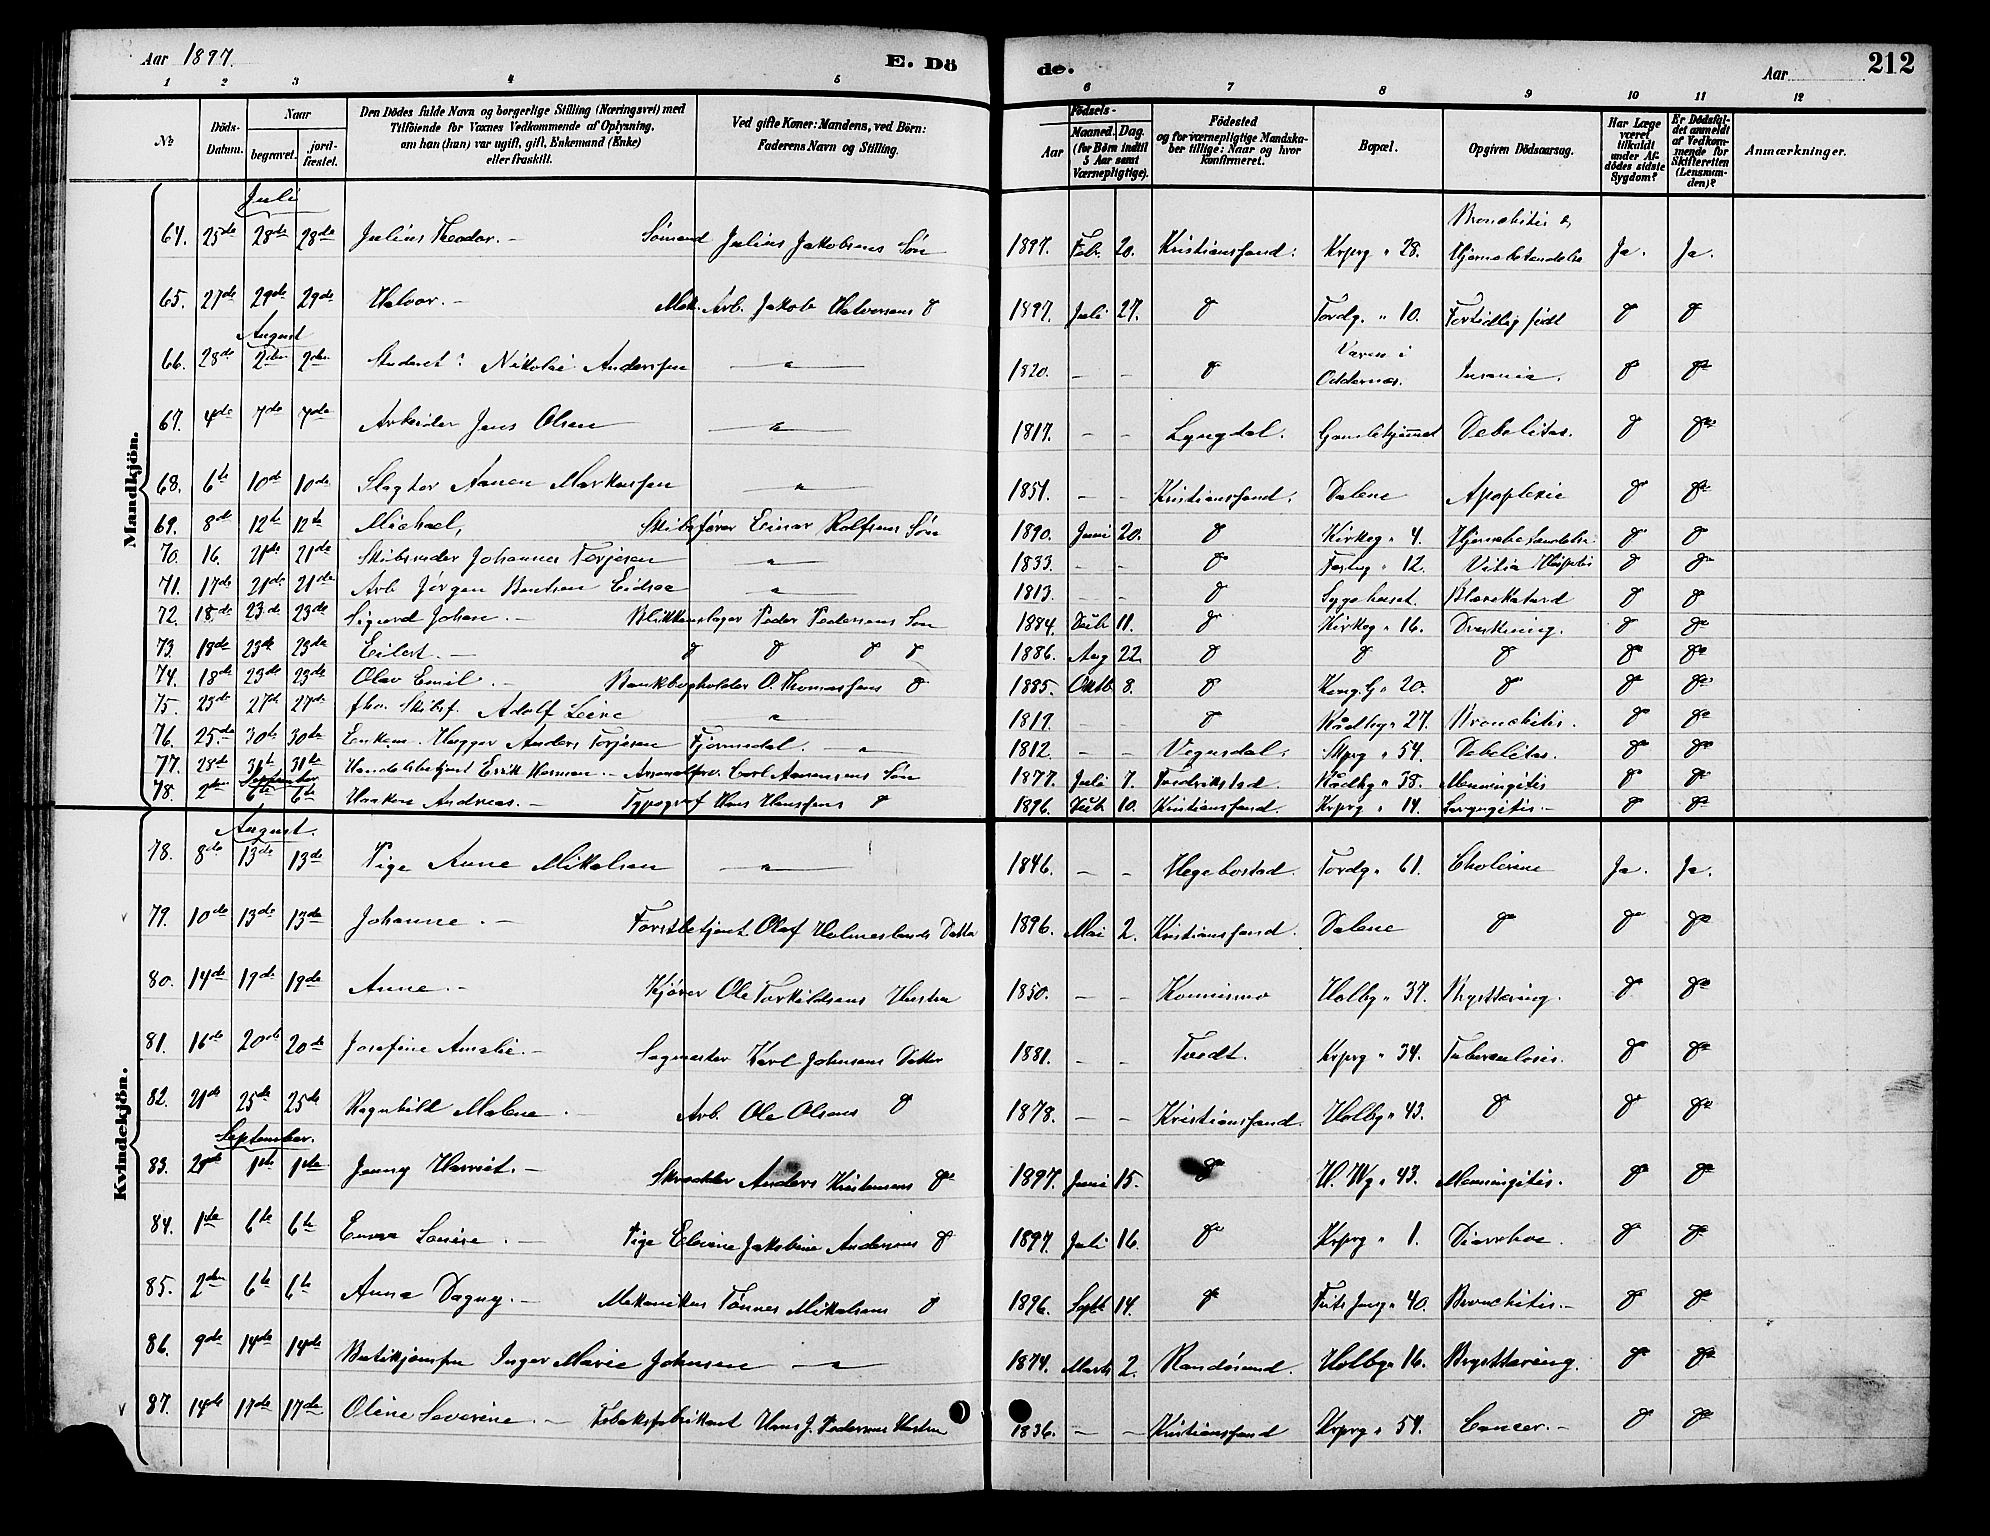 Aar 1897. E. Dö de. Aar 212
1 2 3 4 5 6 7 8 9 10 11 12
№ Döds-Datum. Naar begravet. jordfæstet. Den Dödes fulde Navn og borgerlige Stilling (Næringsvei) med Tilföiende for Voxnes Vedkommende af Oplysning, om han (hun) var ugift, gift, Enkemand (Enke) eller fraskilt. Ved gifte Koner: Mandens, ved Börn: Faderens Navn og Stilling. Födsels- Aar Maaned. Dag. (for Börn indtil 5 Aar samt Værnepligtige). Födested og for værnepligtige Mandskaber tillige: Naar og hvor konfirmeret. Bopæl. Opgiven Dödsaarsag. Har Læge været tilkaldt under Afdödes sidste Sygdom? Er Dödsfaldet anmeldt af Vedkommende for Skifteretten (Lensmanden)? Anmærkninger.
Mandkjön.
Juli
64. 25de 28de 28de Julius Theodor. — Sömand Julius Jakobsens Sön 1897. Feb. 20. Kristianssand. Krprg „ 28. Bronchitis & Hjernebetændelse Ja. Ja.
65. 27de 29de 29de Halvor. — Mek. Arb. Jakob Halvorsens d 1897. Juli 27. d Tordg. „ 10. Fortidlig födt d d
August
66. 28de 2den 2den Student: Nikolai Anderssen — „ — 1820. — — d i Oddernæs. Insania. d do
67. 4de 7de 7de Arbeider Jens Olsen — „ — 1817. — — Lyngdal. Gamlehjemmet Debilitas. d do
68. 6te 10de 10de Slagter Aanen Markussen — „ — 1851. — — Kristianssand. Dalene Apoplexie d do
69. 8de 12te 12te Michael, Skibsförer Einar Rolfsens Sön 1890. Juni 20. d Kirkeg „ 4. Hjernebetændelse d d
70. 16. 21de 21de Skibsreder Johannes Torjesen — „ — 1833. — — do Festng „ 12. Vitia d do
71. 17de 21de 21de Arb Jörgen Bentsen Eidsaa — „ — 1813. — — d Sygehuset. Blærekatarrh d d
72. 18.de 23de 23de Sigurd Johan. — Blikkenslager Peder Pedersens Sön 1884. 11. do Kirkeg „ 16. Drukning. d do
73. 18de 23de 23de Eilert. — d d d d 1886. Aug 22. d d d do do
74. 18de 23de 23de Olav Emil. — Bankbogholder O. Thomassens d 1885. Oktb 8. d Kong. G „ 20. d d do
75. 23de 27de 27de fhv. Skibsf. Adolf Leire — „ — 1817. — — d Rådhg „ 27. Bronchitis. d do
76. 25de 30te 30te Enkem. Hugger Anders Torjesen Fjermedal. — „ — 1812. — — Vegusdal. Skprg „ 54. Debilitas. do do
77. 28de 31te 31te Handelsbetjent Erik Herman. — Carl Aanensens Sön 1877. Juli 7. Fredrikstad. Rådhg „ 38. Meningitis d do
September
78. 2den 6te 6te Haakon Andreas. — Typograf Hans Hanssens d 1896. 10. Kristianssand. Krprg „ 14. Laryngitis. — d do
Kvindekjön.
August.
78. 8de 13de 13de Pige Anne Mikalsen — „ — 1846. — — Hegebostad. Tordg „ 61. Cholerine Ja. Ja.
79. 10de 13de 13de Johanne. — Forstbetjent Olaf Holmeslands Datter 1896. Mai 2. Kristianssand. Dalene do d do
80. 14de 19de 19de Anne. — Kjörer Ole Torkildsens Hustru 1850. — — Konnismo Holbg „ 37. Brysttæring. d do
81. 16de 20de 20de Josefine Amalie. — Sagmester Karl Johnsens Datter 1881. — — Tvedt. Krprg „ 34. Tuberculosis. d do
82. 21de 25de 25de Ragnhild Malene. — Arb. Ole Olsens d 1878. — — Kristianssand. Holbg „ 43. d d do
September.
83. 1ste 1ste Jenny Harriet. — Skrædder Anders Kristensens do 1897. Juni 15. do V. Vg „ 43. Meningitis. d do
84. 1ste 6te 6te Emma Lovise. — Pige Jakobine Andersens d 1897. Juli 16. do Krprg „ 1. Diarrhoe. d do
85. 2den 6te 6te Anna Dagny. — Mekaniker Tönnes Mikalsens d 1896. Septb 14. do 40. Bronchitis. — d do
86. 9de 14de 14de Butikjomfru Inger Marie Johnsen — „ — 1874. Marts 2. Randösund. Holbg „ 16. Brysttæring. do do
87. 14de 17de 17de Oline Severine. — Tobaksfabrikant Hans J. Pedersens Hustru 1836. — — Kristianssand Krprg „ 54. Cancer. — d do